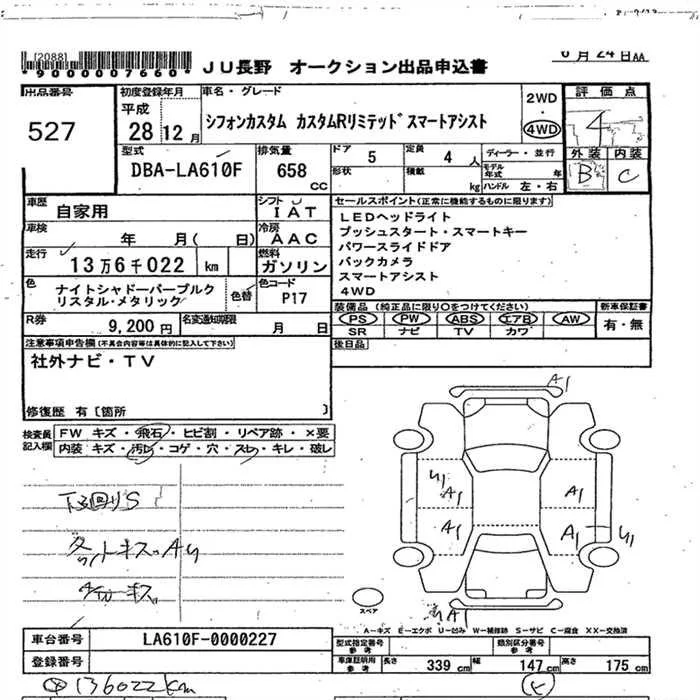 [2088]
*9000007660*
JU長野 オークション出品申込書
6月24日AA
出品番号
527
初度登録年月
平成
28 12月
車名・グレード
シフォンカスタム カスタムRリミテッド スマートアシスト
2WD
・
4WD
評価点
4
外装 内装
B C
型式
DBA-LA610F
排気量
658
CC
ドア 5
形状
定員 4 人
積載 kg
ディーラー・並行
モデル年式 年
ハンドル 左・右
車歴
自家用
シフト
IAT
車検
年 月( 日)
冷房
AAC
走行
13万6千022 km
燃料
ガソリン
色
ナイトシャドーパープルク
リスタル・メタリック
色替
色コード
P17
R券
9,200円
名変通知期限
月 日
セールスポイント(正常に機能するものに限ります)
LEDヘッドライト
プッシュスタート・スマートキー
パワースライドドア
バックカメラ
スマートアシスト
4WD
装備品 (純正品に限り○をつけてください)
PS PW ABS エアB AW
SR ナビ TV カワ
新車保証書
有・無
後日品
注意事項申告欄(不具合内容等は具体的に記入して下さい)
社外ナビ・TV
修復歴 有〔箇所 〕
検査員
記入欄
FW キズ・飛石・ヒビ割・リペア跡・×要
内装 キズ・汚レ・コゲ・穴・スレ・キレ・破レ
下回りS
A1
U1
A1
A1
A1
A1
U1
A1
スペア
A…キズ E…エクボ U…凹み W…補修跡 S…サビ C…腐食 XX…交換済
車台番号
LA610F-0000227
登録番号
型式指定番号
参考
類別区分番号
参考
車庫証明用
参考
長さ 339 cm 幅 147 cm 高さ 175 cm
136022km